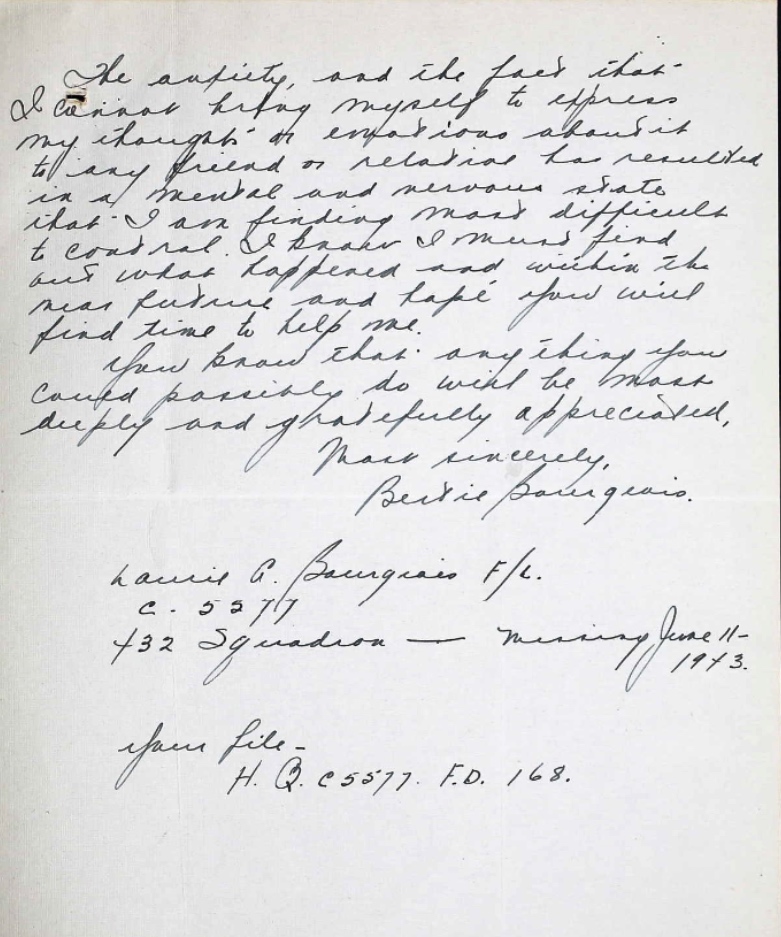 The anxiety, and the fact that
I cannot bring myself to express
my thoughts or emotions about it
to any friend or relative has resulted
in a mental and nervous state
that I am finding most difficult
to control. I know I must find
out what happened and within the
near future and hope you will
find time to help me.
You know that anything you
could possibly do will be most
deeply and gratefully appreciated,
Most sincerely,
Bertie Bourgeois.
Laurie A. Bourgeois F/L.
C. 5577
432 Squadron — Missing June 11-
1943.
Your file -
H. Q. C5577. F.D. 168.